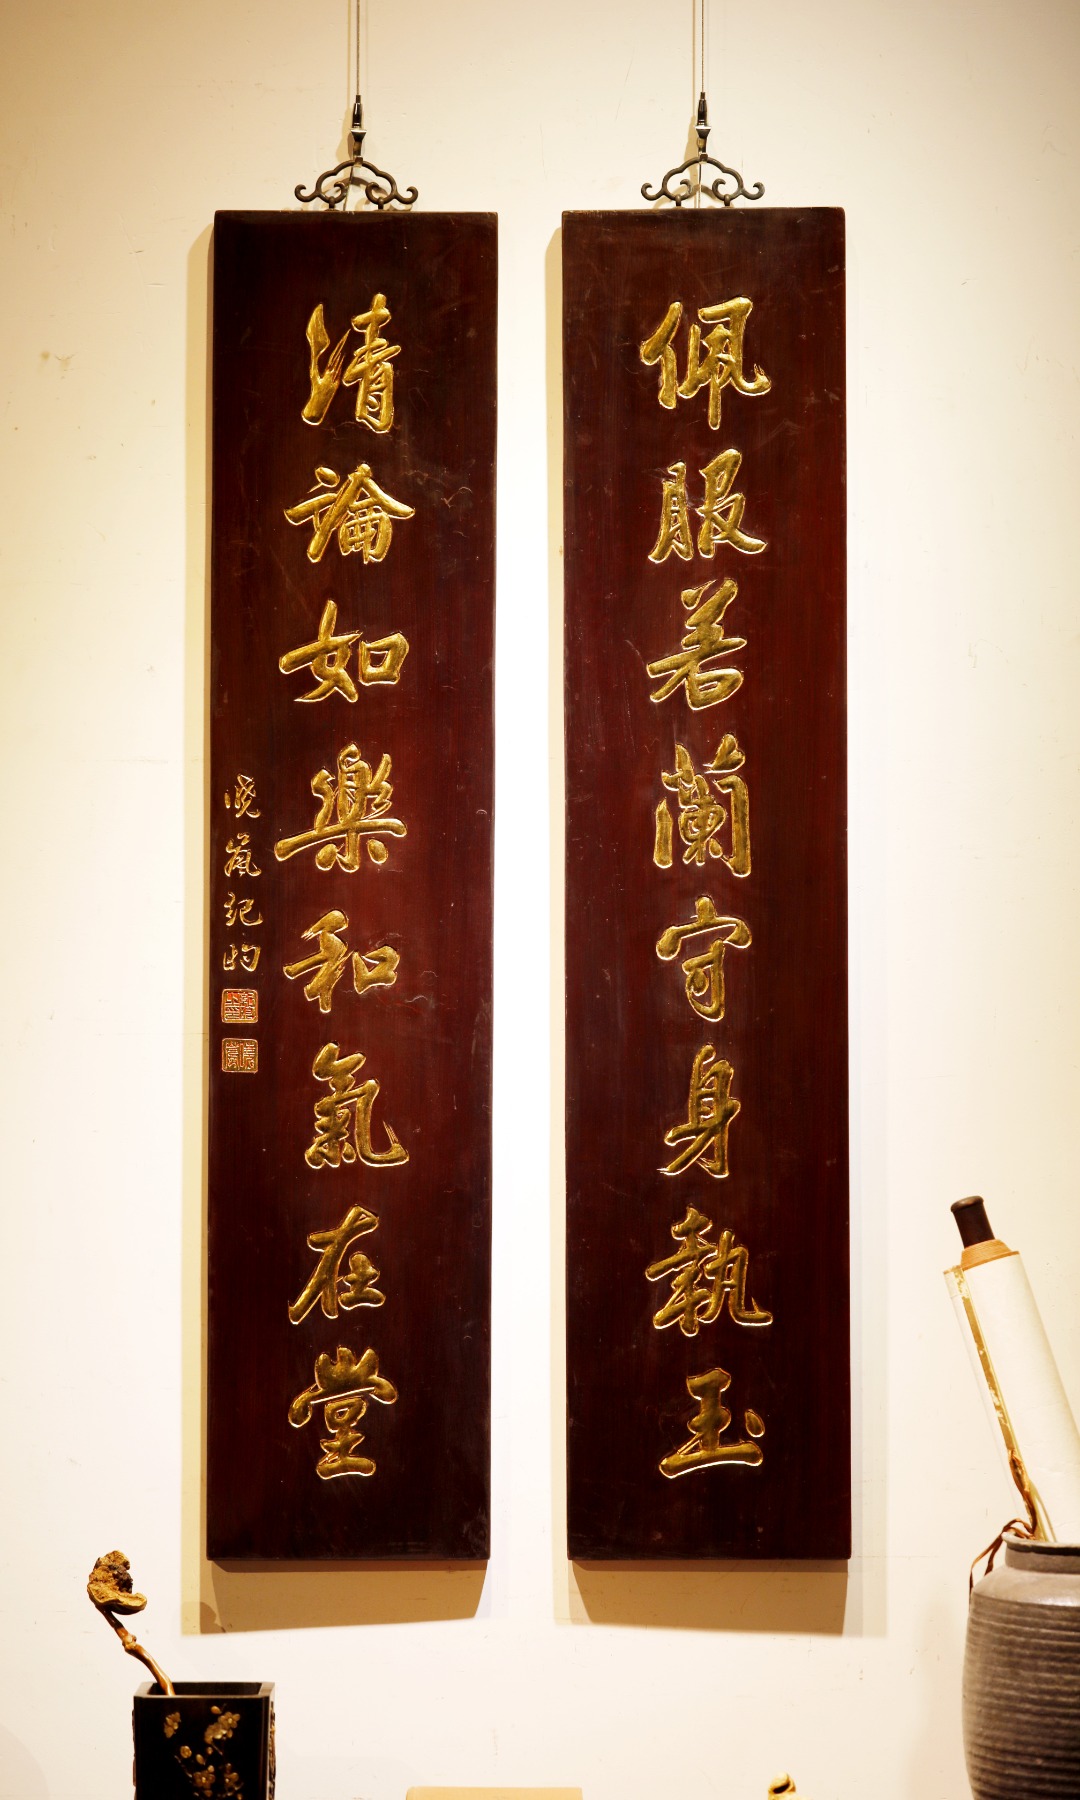 佩服若蘭守身執玉
清論如樂和氣在堂
曉嵐紀昀